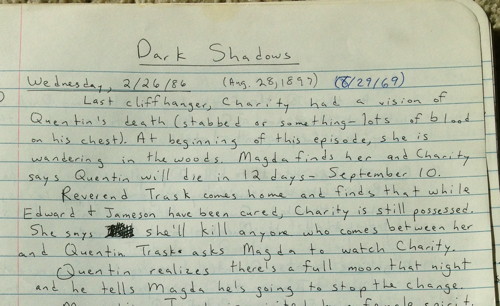 Dark Shadows
Wednesday, 2/26/86 (Aug. 28, 1897) (8/29/69)
Last cliffhanger, Charity had a vision of
Quentin's death (stabbed or something - lots of blood
on his chest). At beginning of this episode, she is
wandering in the woods. Magda finds her and Charity
says Quentin will die in 12 days - September 10.
Reverend Trask comes home and finds that while
Edward + Jameson have been cured, Charity is still possessed.
She says she'll kill anyone who comes between her
and Quentin Trask asks Magda to watch Charity.
Quentin realizes there's a full moon that night
and he tells Magda he's going to stop the change.